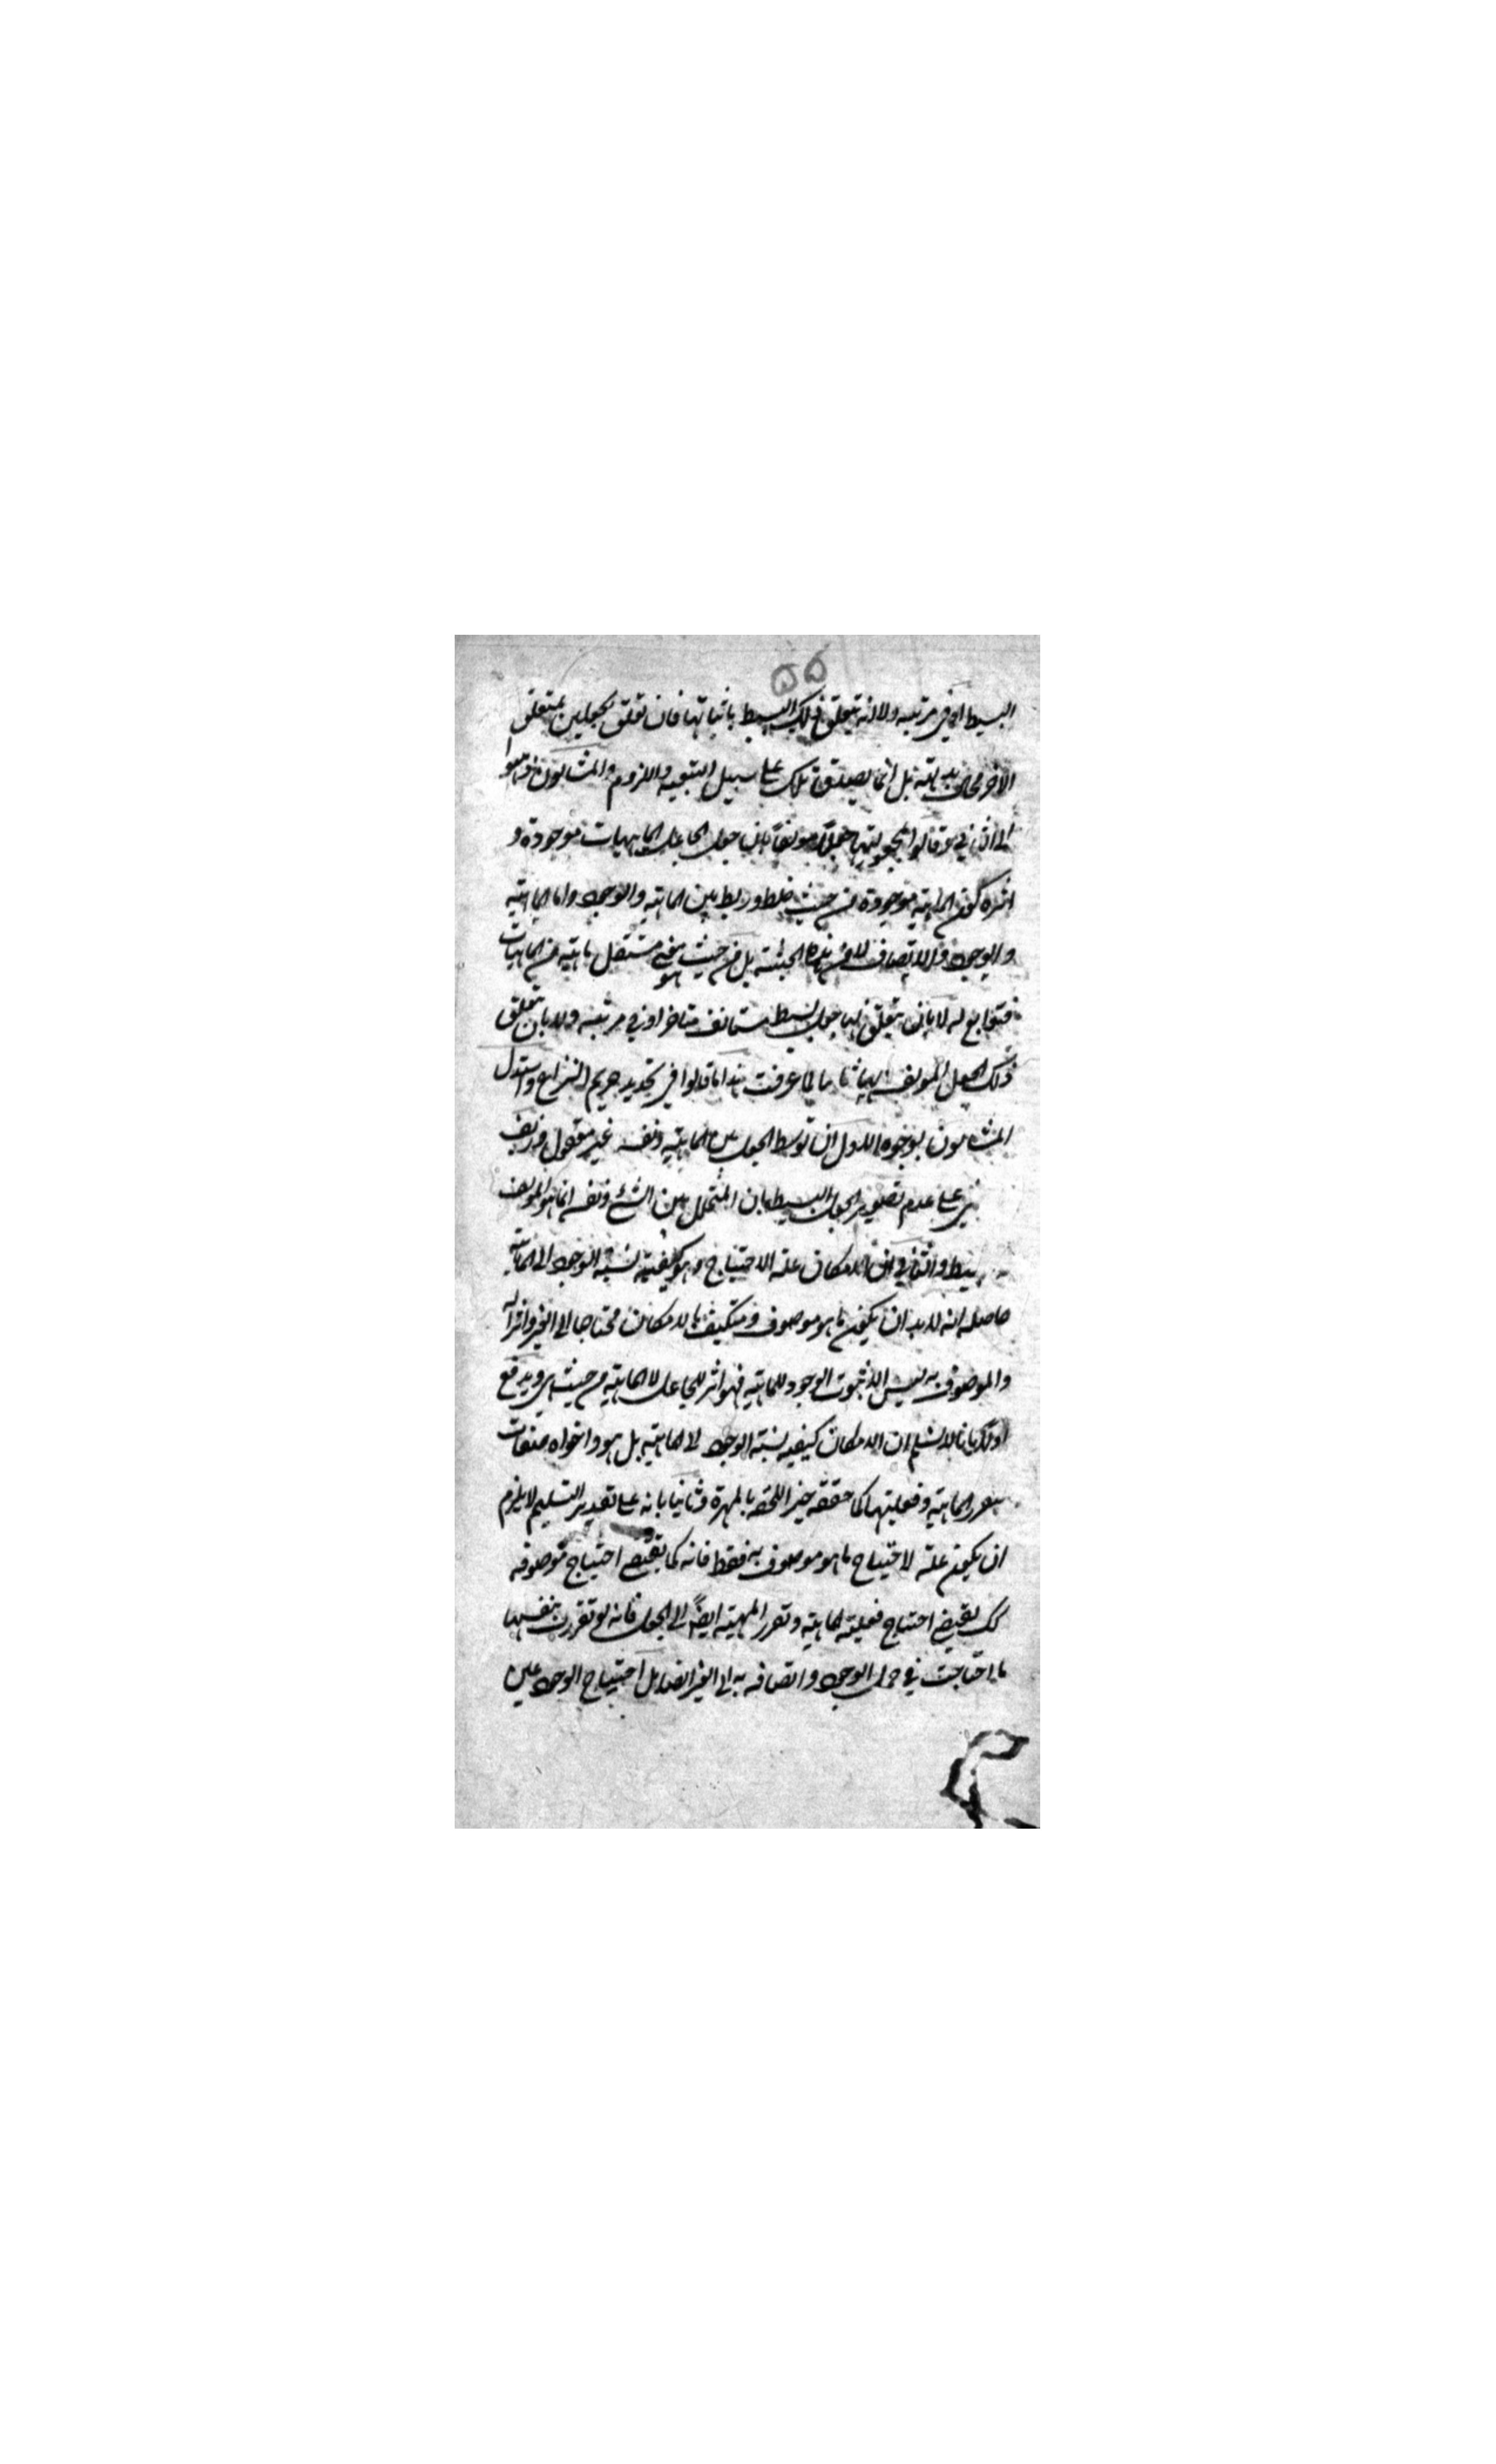 ٥٥
البسيط اى فى مرتبه ولا انه يتعلق ذلك البسيط باثباتها فان تعلق بجعلين بمتعلق
الاخر محال بداهة بل انما يصدق تلك على سبيل التبعيه واللزوم والمشاؤن ذهبوا
الى الثانى وقالوا بمجعوليتها جعلا مولفا بان جعل الجاعل الماهيات موجودة و
اثره كون الماهية موجودة من حيث خلط وربط بين الماهية والوجود واما الماهية
والوجود والاتصاف لا من هذه الحيثية بل من حيث هو شئ مستقل ماهية من الماهيات
فتوابع له لا بان يتعلق بها جعل بسيط مستانف متاخر او فى مرتبه ولا بان يتعلق
ذلك الجعل المولف بها ثانيا لما عرفت هذا ما قالوا فى تحديد حريم النزاع واستدل
المشاؤن بوجوه الاول ان توسط الجعل بين الماهية ونفسه غير معقول وزيف
على عدم تصوير الجعل البسيط بان المتخلل بين الشئ ونفسه انما هو المولف
والثانى ان الامكان علة الاحتياج وهو كيفية نسبة الوجود الى الماهية
حاصله انه لا بد ان يكون ما هو موصوف ومتكيف بالامكان محتاجا الى الغير واثرا له
والموصوف به ليس الا ثبوت الوجود للماهية فهو اثر للجاعل لا الماهية من حيث هى ويدفع
اولا بانا لا نسلم ان الامكان كيفية نسبة الوجود الى الماهية بل هو واخواه صفات
الماهية وفعليتها كما حققه خير اللحقه بالمهرة وثانيا بانه على تقدير التسليم لا يلزم
ان يكون علة لاحتياج ما هو موصوف به فقط فانه كما يقتضى احتياج موصوفه
كك يقتضى احتياج فعلية الماهية وتقرر المهية ايضا الى الجعل فانه لو تقررت بنفسها
ما احتاجت فى حمل الوجود واتصافه به الى الغير بل احتياج الوجود عين